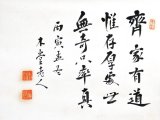 齊家有道
惟存厚處世
無奇只率真
丙寅
木堂老人